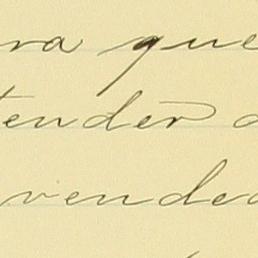 ra que
tender
vended